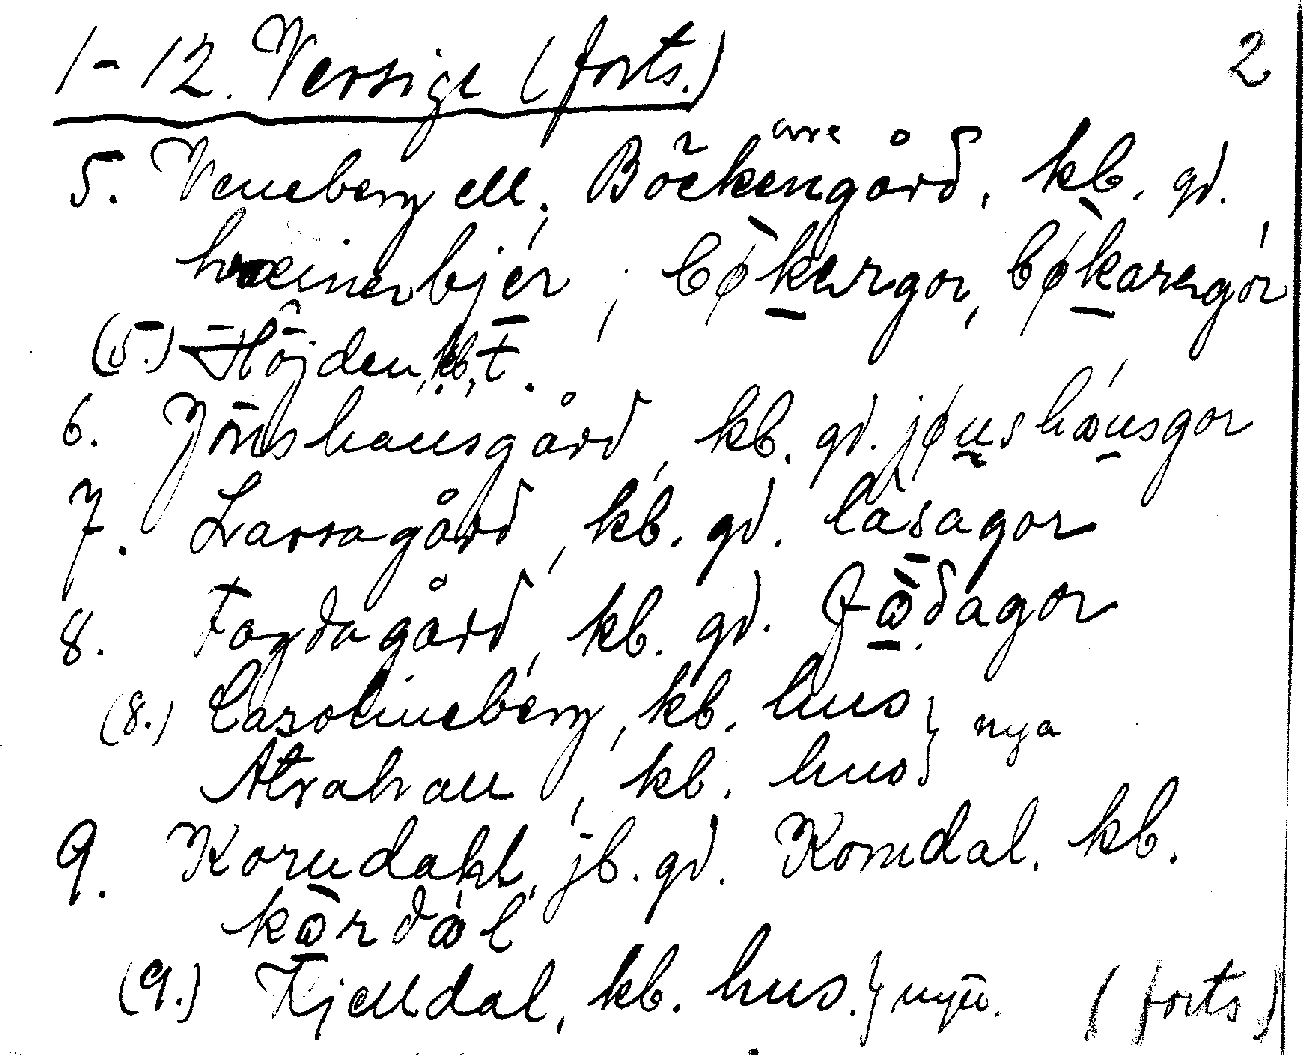 1-12. Versige (forts.) 2
5. Veneberg ell. Böckengård, kb. gd.
hæinebjer; bøkergor, bøkaregór
(5.) Höjden, kb, t.
6. Jönshansgård, kb. gd. jøns hansgor
7. Larsagård, kb. gd. lasagor
8. Fogdagård, kb. gd. fωdagor
(8.) Carolineberg, kb. hus } nya
Abraham, kb. hus }
9. Korndahl, jb. gd. Korndal. kb.
kωrdωl
(9.) Kjelldal, kb. hus. } nya. (forts)